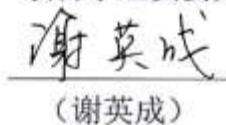 谢英成
（谢英成）